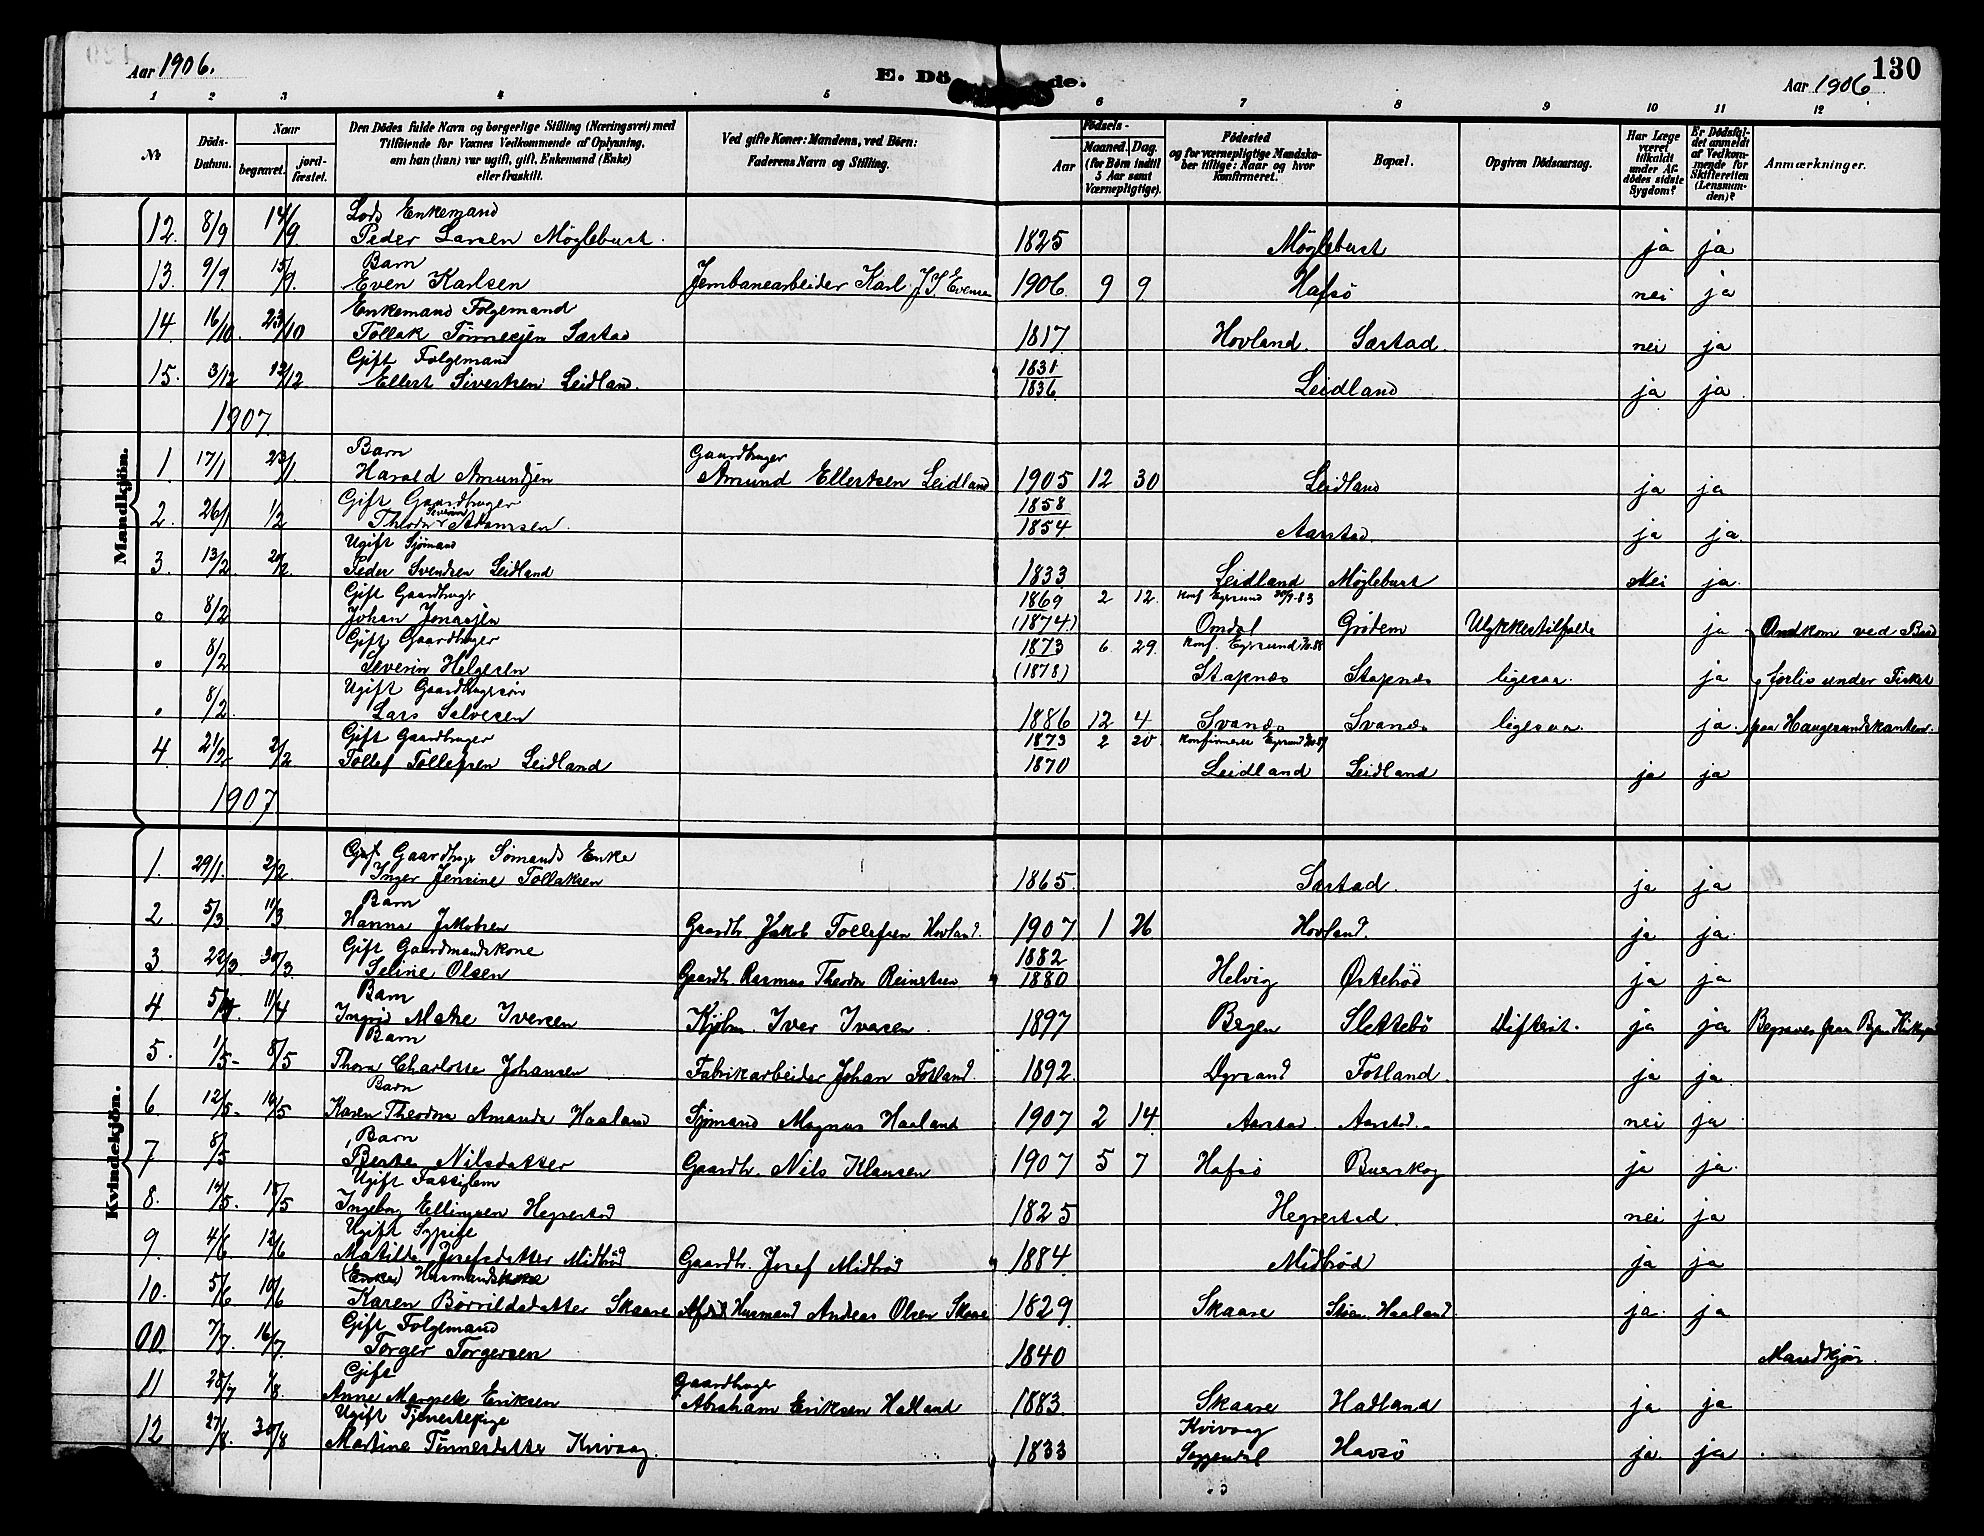 Aar 1906.
E. Dö de.
Aar 1906
130
1 2 3 4 5 6 7 8 9 10 11 12
No
Döds-Datum.
Naar
begravet.
jord-fæstet.
Den Dödes fulde Navn og borgerlige Stilling (Næringsvei) med Tilföiende for Voxnes Vedkommende af Oplysning, om han (hun) var ugift, gift, Enkemand (Enke) eller fraskilt.
Ved gifte Koner: Mandens, ved Börn: Faderens Navn og Stilling.
Födsels-
Aar
Maaned. Dag.
(for Börn indtil 5 Aar samt Værnepligtige).
Födested
og for værnepligtige Mandskaber tillige: Naar og hvor konfirmeret.
Bopæl.
Opgiven Dödsaarsag.
Har Læge været tilkaldt under Afdödes sidste Sygdom?
Er Dödsfaldet anmeldt af Vedkommende for Skifteretten (Lensmanden)?
Anmærkninger.
Mandkjön.
Lods Enkemand
12. 8/9 14/9 Peder Larsen Mögleburst. 1825 Mögleburst ja ja
Barn
13. 9/9 15/9 Even Karlsen Jernbanearbeider Karl J. S. Evensen 1906. 9 9 Hafsö nei ja
Enkemand Folgemand
14. 16/10. 23/10 Tollak Tönnesjen Sæstad 1817 Hovland Sæstad nei ja
Gift Folgemand 1831
15. 3/12 12/12 Ellert Sivertsen Leidland. 1836. Leidland ja ja
1907
Barn Gaardbruger
1. 17/1 23/1 Harald Amundsen Amund Ellertsen Leidland 1905 12 30 Leidland ja ja
Gift Gaardbruger 1858
2. 26/1 1/2 Theodor Severin Adamsen 1854. Aarstad ja ja.
Ugift Sjömand
3. 13/2 20/2 Peder Svendsen Leidland 1833 Leidland Mögleburst Nei ja
Gift Gaardbruger 1869 2 12. Konf Egersund
o 8/2 Johan Jonassen (1874.) Omdal Grödem Ulykkestilfælde ja Omkom ved Baad
Gift Gaardbruger 1873 6 29. Konf. Egersund
o 8/2 Severin Helgesen (1878) Stapnes Stapnes ligesaa. ja forlis under Fisket
Ugift Gaardbrugersön
o 8/2. Lars Salvesen 1886 12 4 Svanes Svanes ligesaa ja. paa Haugesundskanten.
Gift Gaardbruger 1873 2 20. Konfirmeret Egersund
4. Tollef Tollefsen Leidland 1870 Leidland Leidland ja ja
1907
Kvindekjön.
Gift Gaardbruger Sömands Enke
1. 29/1. 2/2. Inger Jensine Tollaksen 1865. Sæstad. ja ja
Barn
2 5/3. 11/3 Hanna Jakobsen Gaardbr. Jakob Tollefsen Hovland. 1907 1 26 Hovland. ja ja.
Gift Gaardmandskone 1882
3 22/3 30/3. Seline Olsen Gaardbr. Rasmus Theodor Reinertsen 1880 Helvig Östebröd ja ja
Barn
4. 5/4. 11/4 Ingrid Marie Iversen Kjöbm. Iver Iversen. 1897 Bergen Slettebö Difterit. ja ja Begraves paa Byens Kirkegaard
Barn
5. 1/5- 8/5 Thora Charlotte Johansen Fabrikarbeider Johan Fotland. 1892. Dyrsand Fotland. ja ja.
Barn
6 12/5- 16/5 Karen Theodora Amanda Haaland Sjömand Magnus Haaland 1907 2 14. Aarstad. Aarstad. nei ja
Barn
7 8/5 Berta Nilsdatter Gaardbr. Nils Klausen 1907 5 7 Hafsö Buerskog ja ja.
Ugift Fattiglem
8. 14/5. 18/5 Ingeborg Ellingsen Hegrestad 1825 Hegrestad. nei ja
Ugift Sypige
9. 4/6 12/6 Matilde Josefsdatter Midbröd Gaardbr. Josef Midbröd 1884 Midbröd ja ja
(Enke) Husmandskone
10. 5/6 10/6 Karen Börrildsdatter Skaare Afdöd Husmand Andreas Olsen Skaare 1829 Skaare Haaland. ja. ja
Gift Folgemand
00. 7/7. 16/7. Torger Torgersen 1840 Mandkjön.
Gift Gaardbruger
11 28/7 7/8. Anne Margrete Eriksen Abraham Eriksen Hadland 1883. Skaare Hadland ja ja
Ugift Tjenestepige Kvivaag
12 27/8. 30/8 Martine Tönnesdatter Kvivaag. 1833 Soggendal Havsö ja. ja